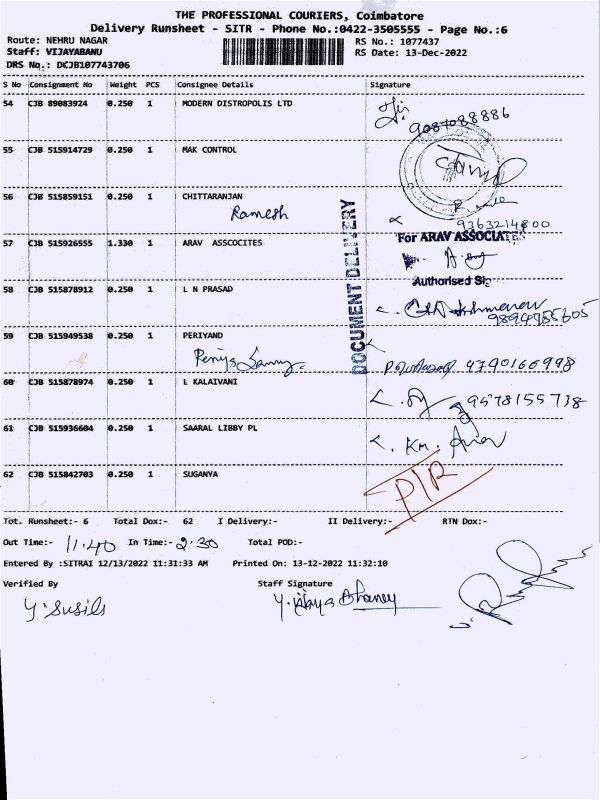 THE PROFESSIONAL COURIERS, Coimbatore
Delivery Runsheet - SITR - Phone No.:0422-3505555 - Page No.:6
Route: NEHRU NAGAR
RS No.: 1077437
Staff: VIJAYABANU
RS Date: 13-Dec-2022
DRS No.: DCJB107743706
S No Consignment No Weight PCS Consignee Details Signature
54 CJB 89083924 0.250 1 MODERN DISTROPOLIS LTD
9087088886
55 CJB 515914729 0.250 1 MAK CONTROL
56 CJB 515859151 0.250 1 CHITTARANJAN
Ramesh
9363214800
57 CJB 515926555 1.330 1 ARAV ASSCOCITES
For ARAV ASSOCIATES
Authorised Sig
DOCUMENT DELIVERY
58 CJB 515878912 0.250 1 L N PRASAD
9894955605
59 CJB 515949538 0.250 1 PERIYAND
9790166998
60 CJB 515878974 0.250 1 L KALAIVANI
9578155738
61 CJB 515936604 0.250 1 SAARAL LIBBY PL
62 CJB 515842703 0.250 1 SUGANYA
P/R
Tot. Runsheet:- 6 Total Dox:- 62 I Delivery:- II Delivery:- RTN Dox:-
Out Time:- 11.40 In Time:- 2.30 Total POD:-
Entered By :SITRAI 12/13/2022 11:31:33 AM Printed On: 13-12-2022 11:32:10
Verified By Staff Signature
Y. Susils